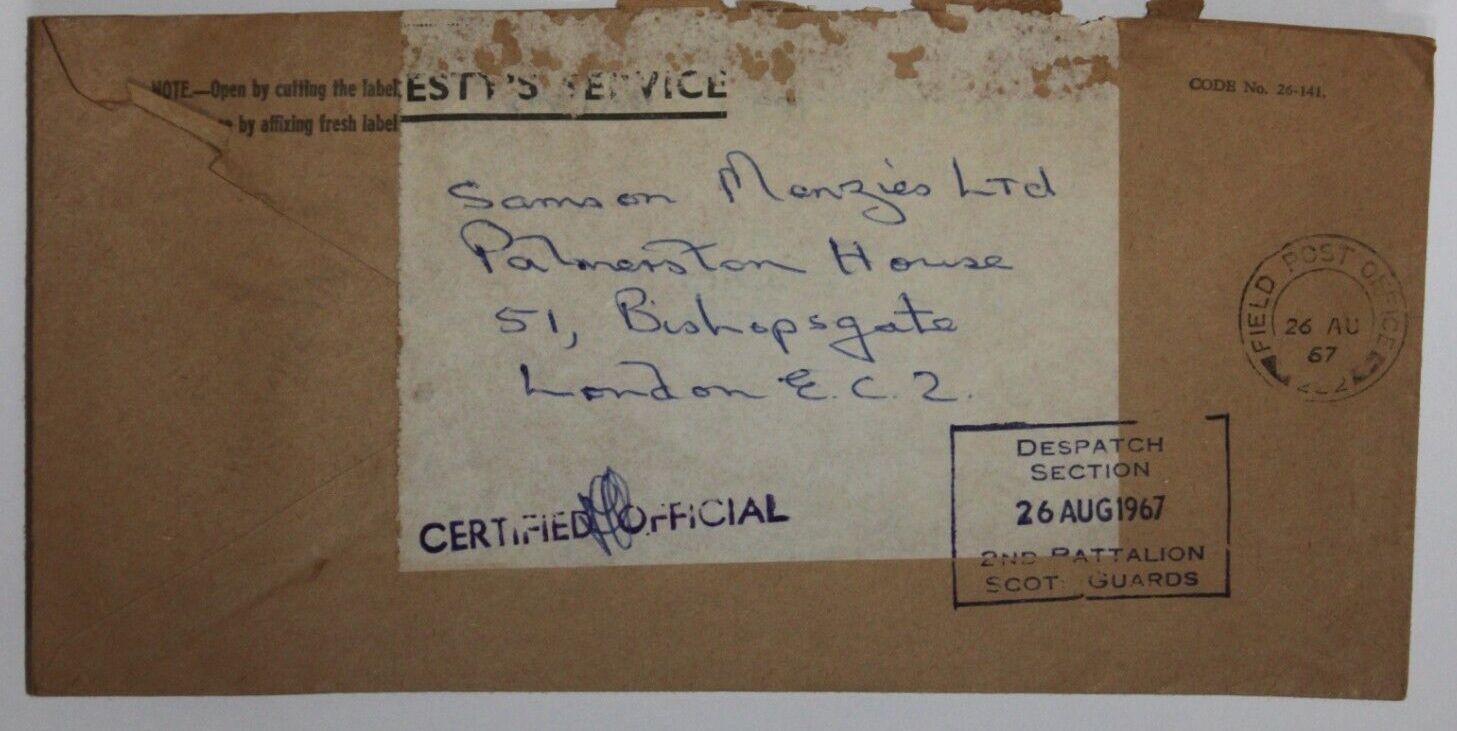 NOTE.—Open by cutting the label,
by affixing fresh label
ESTY'S SERVICE
CODE No. 26-141.
Samson Menzies Ltd
Palmerston House
51, Bishopsgate
London E.C.2.
FIELD POST OFFICE
26 AU
67
CERTIFIED OFFICIAL
DESPATCH
SECTION
26 AUG 1967
2ND BATTALION
SCOTS GUARDS